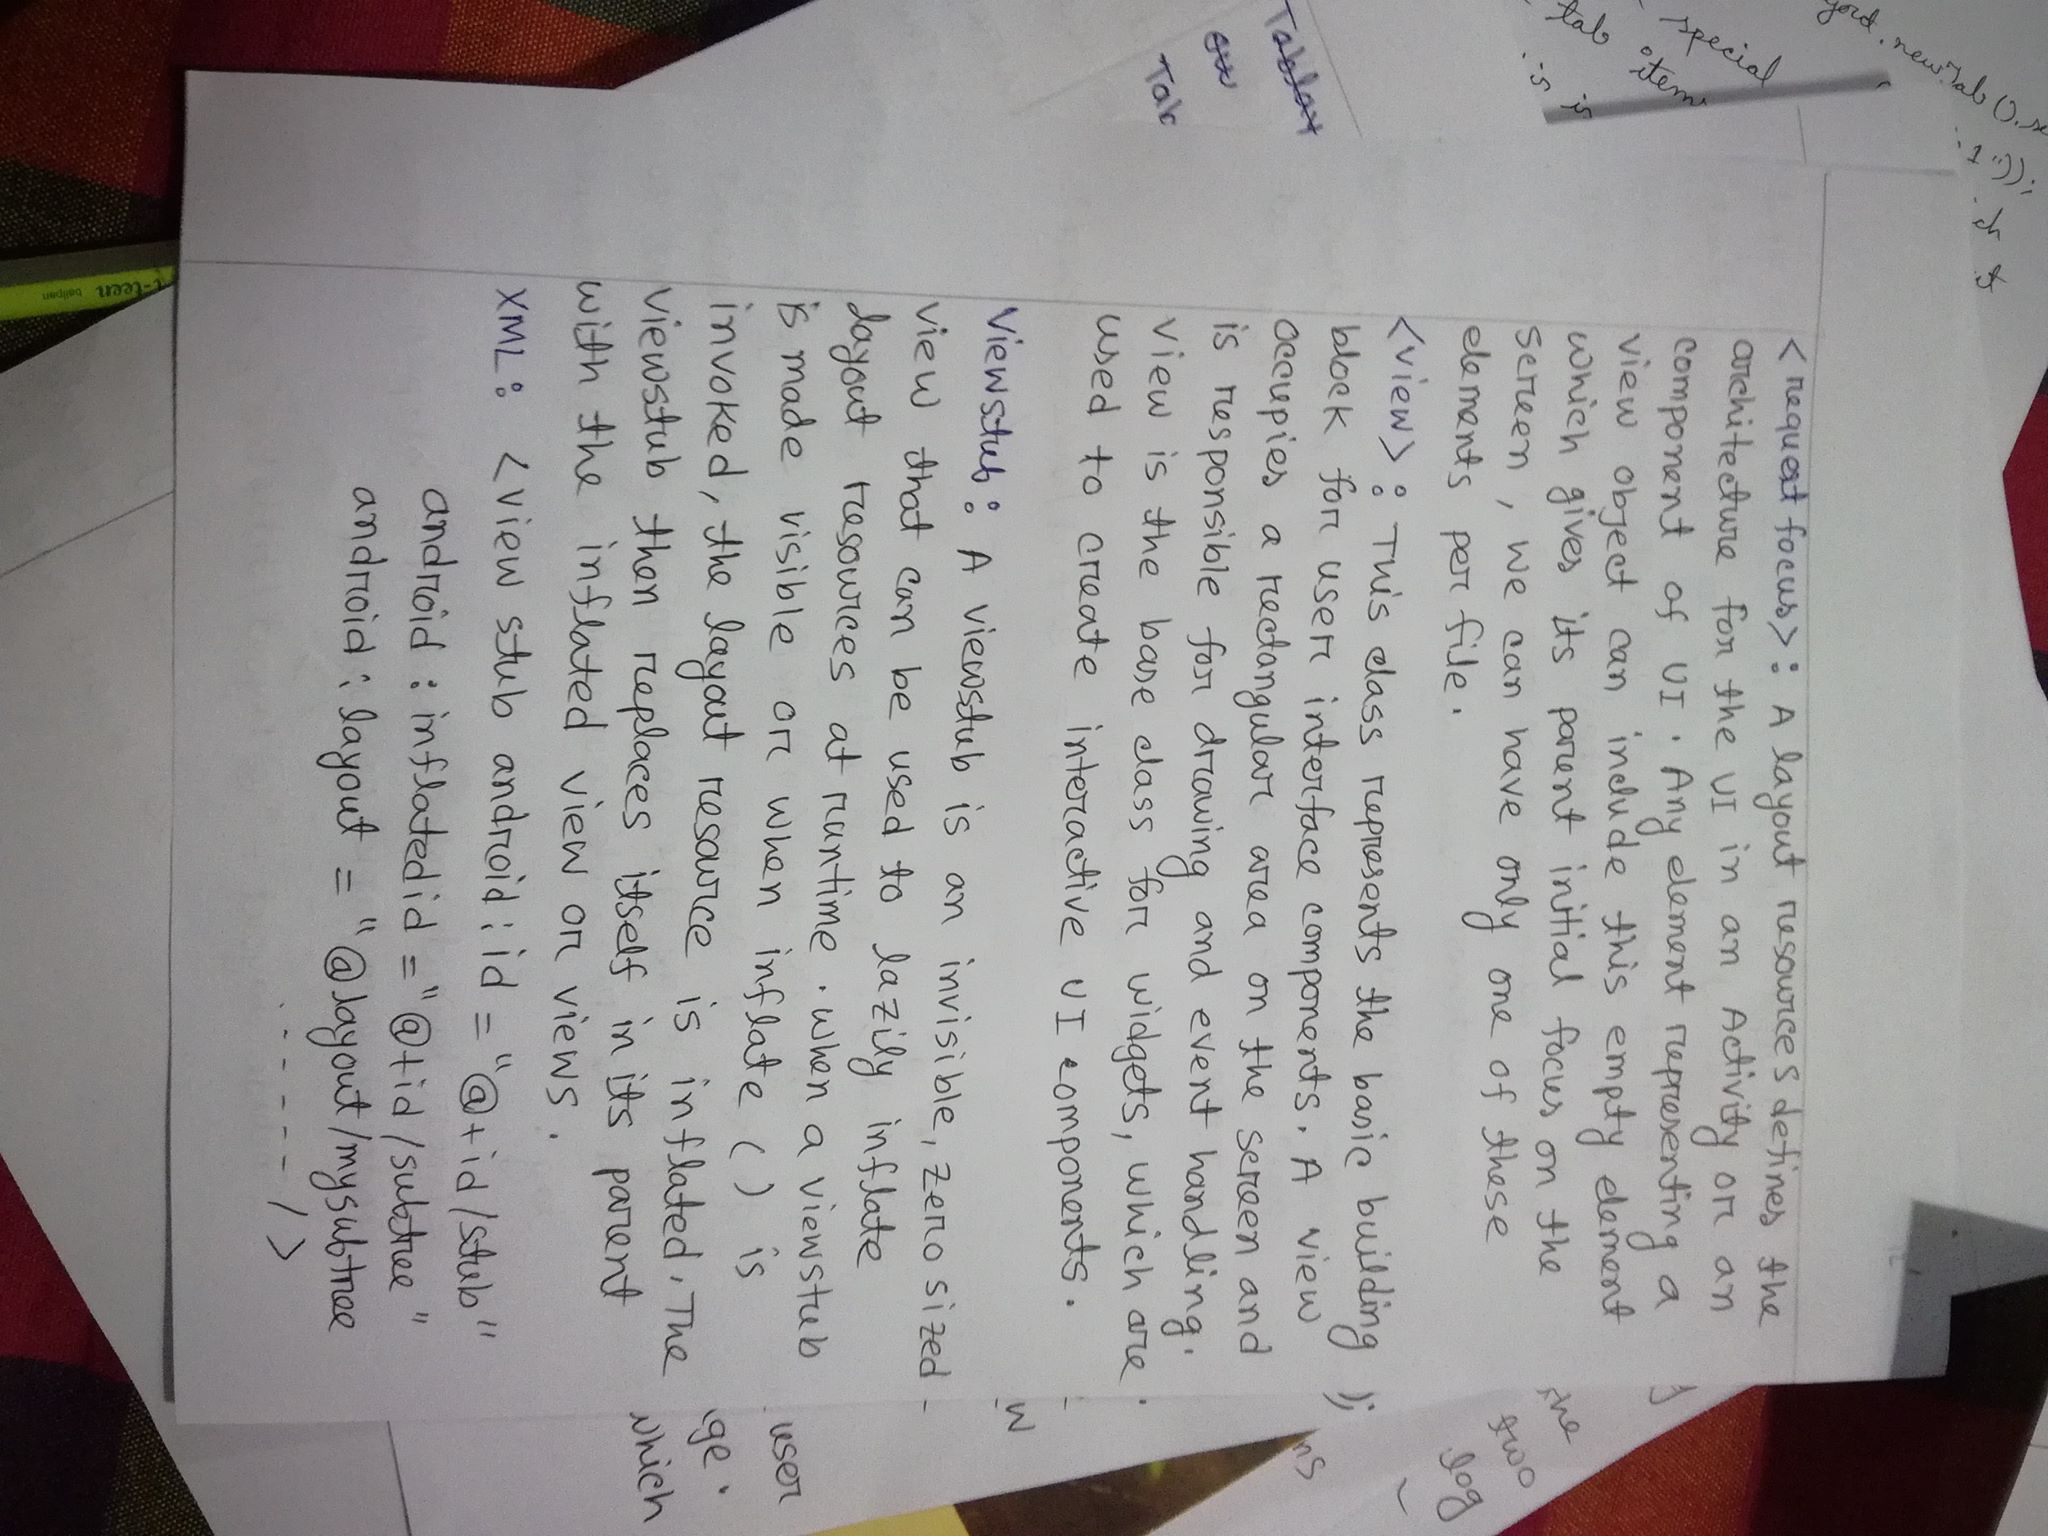 <request focus>: A layout resources defines the
architecture for the UI in an Activity or an
component of UI. Any element representing a
view object can include this empty element
which gives its parent initial focus on the
screen, we can have only one of these
elements per file.
<view>: This class represents the basic building
block for user interface components. A view
occupies a rectangular area on the screen and
is responsible for drawing and event handling.
view is the base class for widgets, which are
used to create interactive UI components.
Viewstub: A viewstub is an invisible, zero sized
view that can be used to lazily inflate
layout resources at runtime. when a viewstub
is made visible or when inflate ( ) is
invoked, the layout resource is inflated. The
viewstub then replaces itself in its parent
with the inflated view or views.
XML: <view stub android : id = "@+id/stub"
android : inflatedid = "@+id/subtree"
android : layout = "@layout/mysubtree
- - - - - />
Tablayout
Tab
special
tab items
is in
.newTab().se
1"));
ch
user
ge.
which
w
ns
the
two
log
t-teen
ballpen